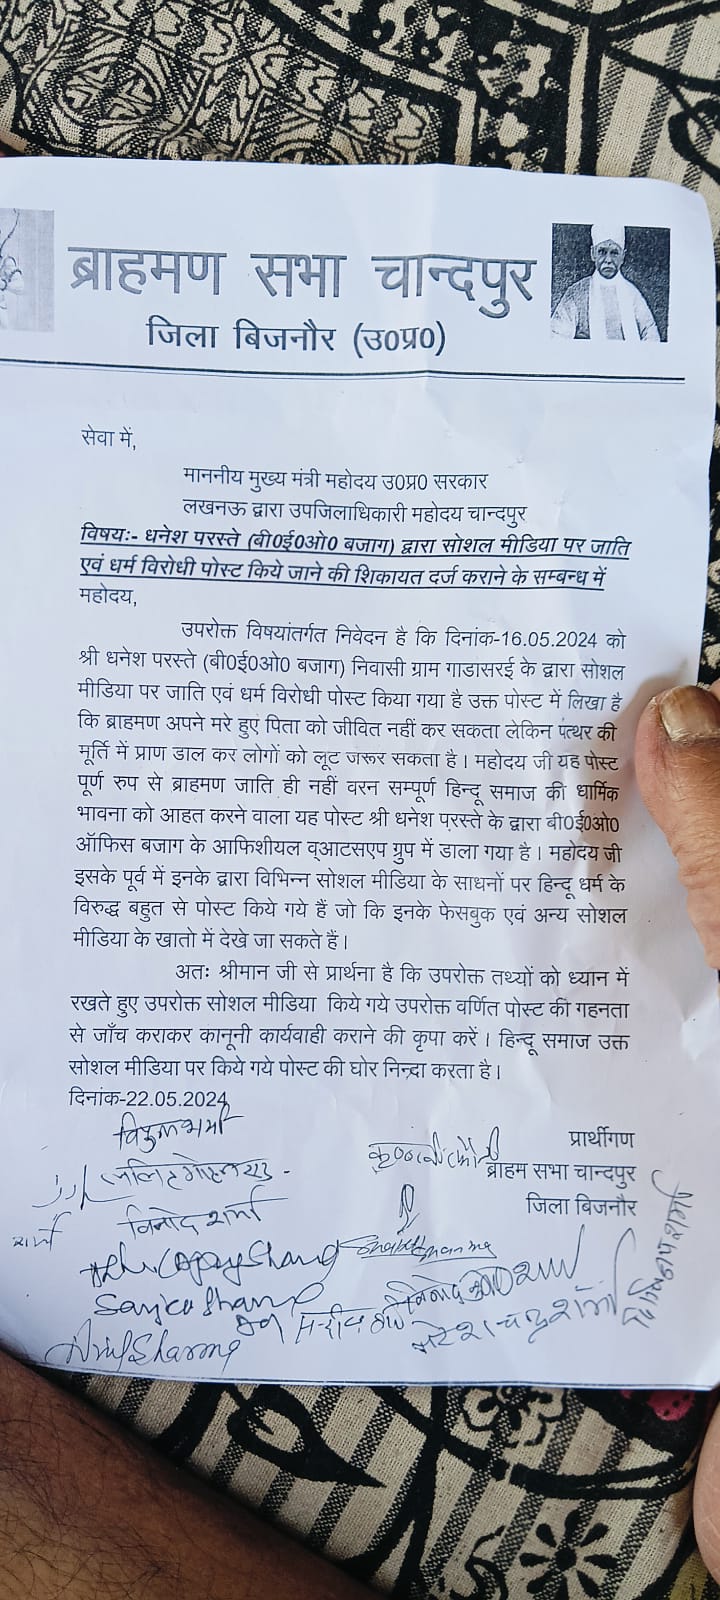 ब्राहमण सभा चान्दपुर
जिला बिजनौर (उ0प्र0)
सेवा में,
माननीय मुख्य मंत्री महोदय उ0प्र0 सरकार
लखनऊ द्वारा उपजिलाधिकारी महोदय चान्दपुर
विषयः- धनेश परस्ते (बी0ई0ओ0 बजाग) द्वारा सोशल मीडिया पर जाति
एवं धर्म विरोधी पोस्ट किये जाने की शिकायत दर्ज कराने के सम्बन्ध में
महोदय,
उपरोक्त विषयांतर्गत निवेदन है कि दिनांक-16.05.2024 को
श्री धनेश परस्ते (बी0ई0ओ0 बजाग) निवासी ग्राम गाडासरई के द्वारा सोशल
मीडिया पर जाति एवं धर्म विरोधी पोस्ट किया गया है उक्त पोस्ट में लिखा है
कि ब्राहमण अपने मरे हुए पिता को जीवित नहीं कर सकता लेकिन पत्थर की
मूर्ति में प्राण डाल कर लोगों को लूट जरूर सकता है। महोदय जी यह पोस्ट
पूर्ण रुप से ब्राहमण जाति ही नहीं वरन सम्पूर्ण हिन्दू समाज की धार्मिक
भावना को आहत करने वाला यह पोस्ट श्री धनेश परस्ते के द्वारा बी0ई0ओ0
ऑफिस बजाग के आफिशीयल व्आटसएप ग्रुप में डाला गया है। महोदय जी
इसके पूर्व में इनके द्वारा विभिन्न सोशल मीडिया के साधनों पर हिन्दू धर्म के
विरुद्ध बहुत से पोस्ट किये गये हैं जो कि इनके फेसबुक एवं अन्य सोशल
मीडिया के खातो में देखे जा सकते हैं।
अतः श्रीमान जी से प्रार्थना है कि उपरोक्त तथ्यों को ध्यान में
रखते हुए उपरोक्त सोशल मीडिया किये गये उपरोक्त वर्णित पोस्ट की गहनता
से जाँच कराकर कानूनी कार्यवाही कराने की कृपा करें। हिन्दू समाज उक्त
सोशल मीडिया पर किये गये पोस्ट की घोर निन्द्रा करता है।
दिनांक-22.05.2024
प्रार्थीगण
ब्राहम सभा चान्दपुर
जिला बिजनौर
विनोद शर्मा
शर्मा
Sharma